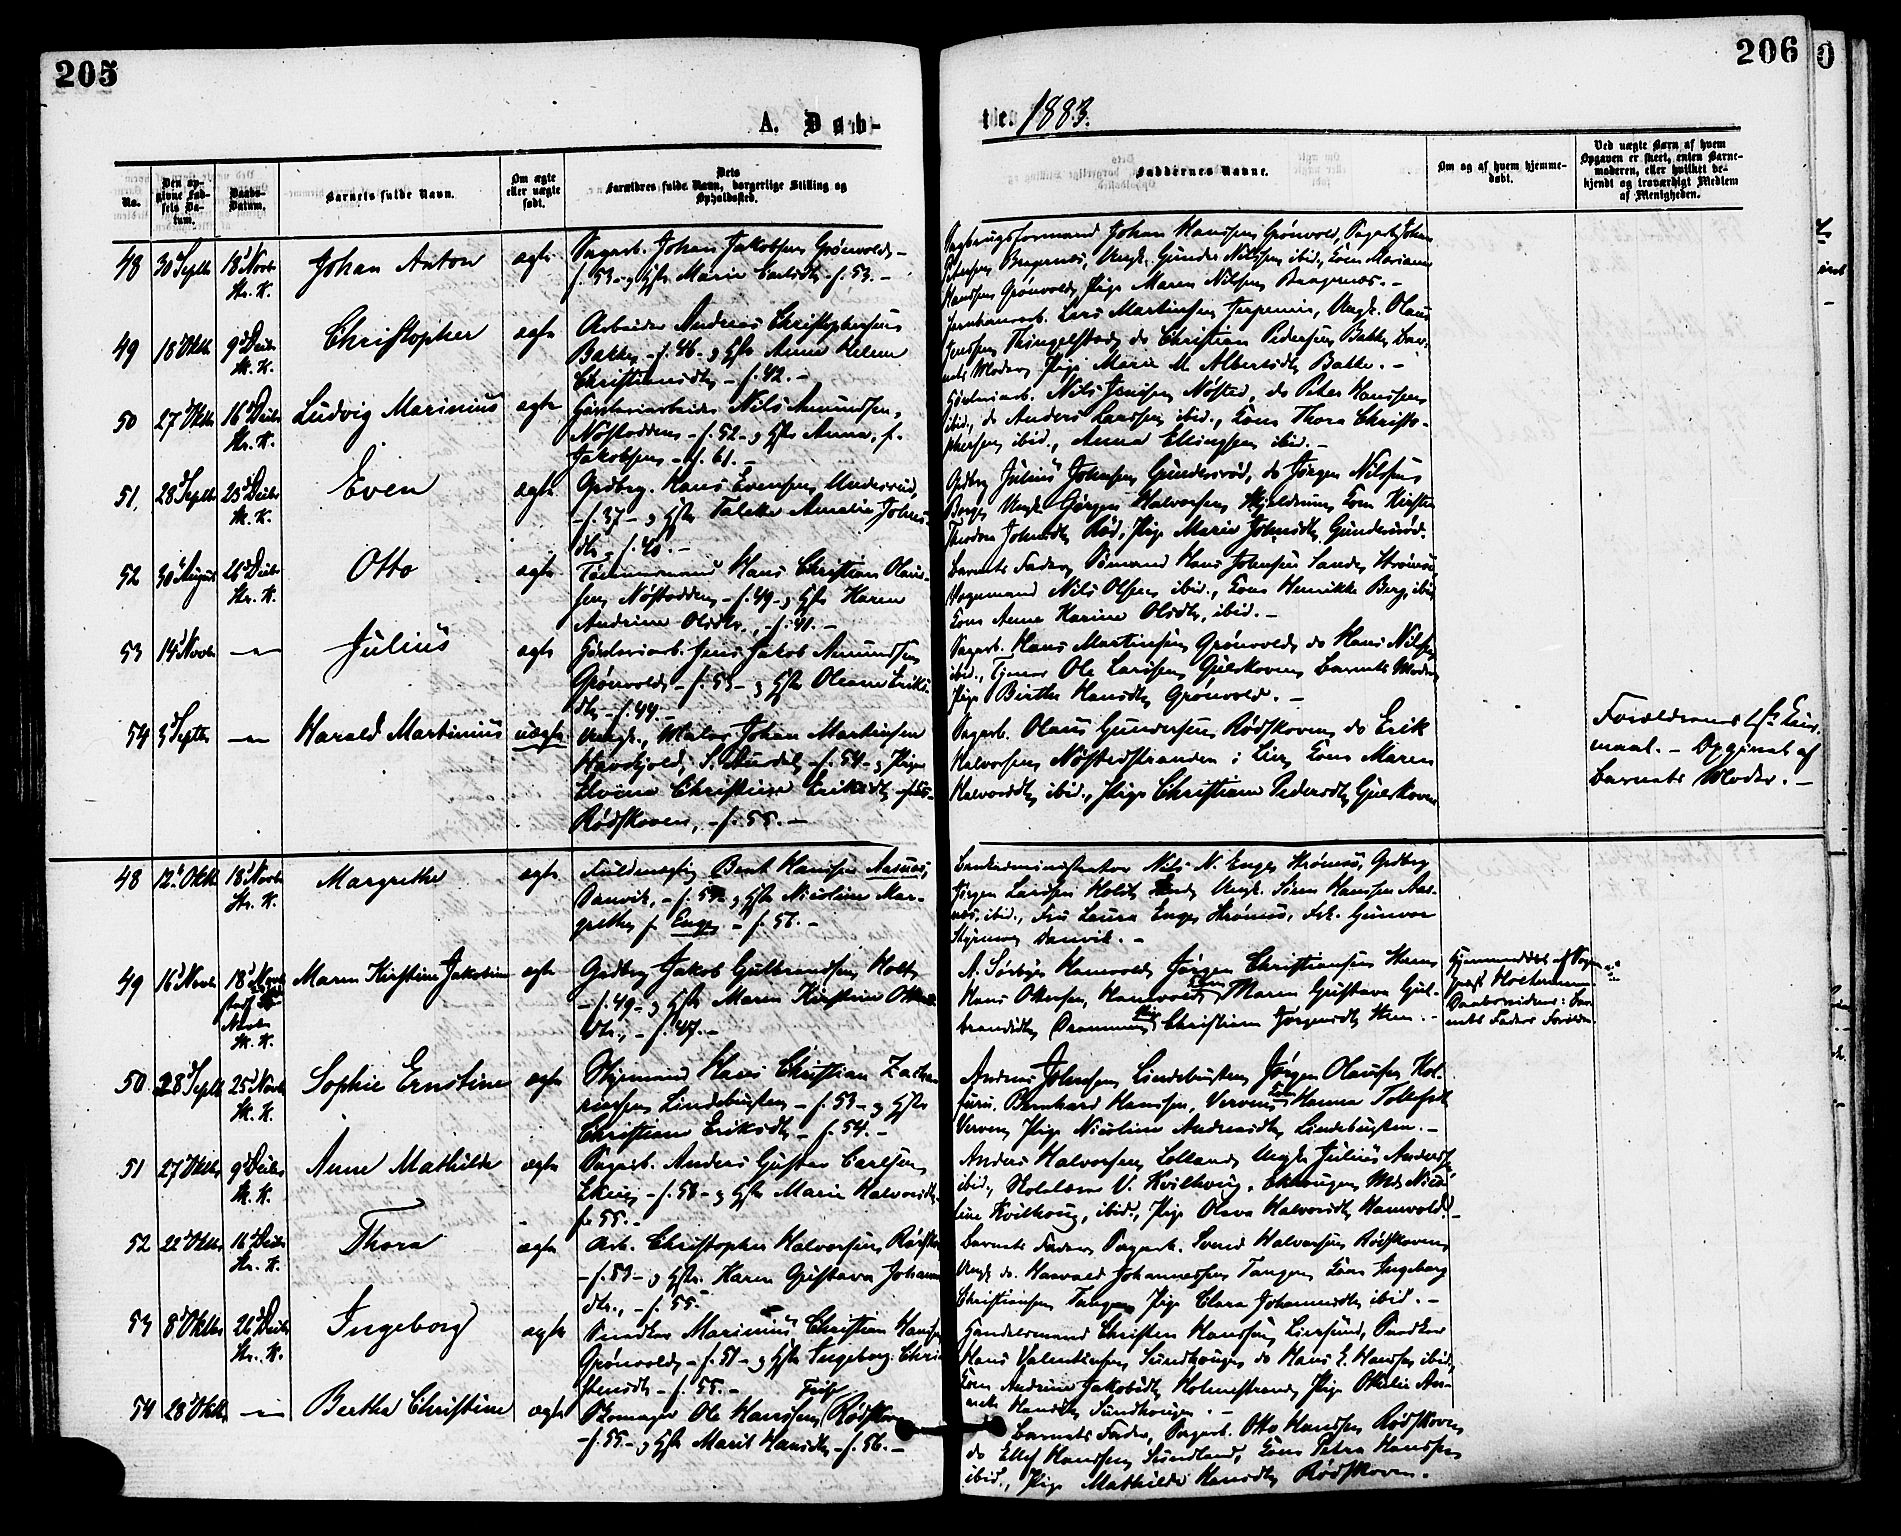 205
206
A. Døb-
te. 1883.
No.
Den op-
givne Fød-
sels Da-
tum.
Daabs-
Datum.
Barnets fulde Navn.
Om ægte
eller uægte
født.
Dets
Forældres fulde Navn, borgerlige Stilling og
Opholdssted.
Faddernes Navne.
Om og af hvem hjemme-
døbt.
Ved uægte Børn af hvem
Opgaven er skeet, enten Barne-
moderen, eller hvilket be-
kjendt og troværdigt Medlem
af Menigheden.
48 30 Septbr 18 Novbr Johan Anton ægte Sagarb. Johan Jakobsen Grønvold, -
Str. K. f. 53 - og Hstr Marie Carlsdtr f. 53. -
Sagbrugsformand Johan Hanssen Grønvold, Sagarb. Johan
Petersen Bragernes, Ungk. Gunder Nilssen ibid, Kone Mariane
Hanssen Grønvold, Pige Maren Nilssen Bragernes. -
49 18 Oktbr 9 Decbr Christopher ægte Arbeider Andreas Christophersen
St. K. Bakke, - f. 46 - og Hstr Anne Helene
Christiansdtr - f. 42. -
Lars Martinsen Ungk. Olaus
Jenssen Thingelstad, do Christian Pedersen Bakke, Bar-
nets Moder, Pige Marie M. Albertsdtr Bakke. -
50 27 Oktbr 16 Decbr Ludvig Marinius ægte Garveriarbeider Nils Amundsen,
Str. K. Nøstodden - f. 52 - og Hstr Anna, f.
Jakobsen - f. 61. -
Nils Jenssen Nøsted, do Peter Hanssen
ibid., do Anders Larssen ibid., Kone Thora Christo-
phersen ibid., Anna Ellingsen ibid. -
51. 28 Septbr 25 Decbr Even ægte Grdbrg. Hans Evensen Underrud,
St. K. - f. 37 - og Hstr Talette Amalie Johns-
dtr - f. 40. -
Grdbrg Julius Johnsen Gundersrød, do Jørgen Nilssen
Berg, Ungk. Jørgen Halvorsen Skjeldrum, Kone Kirsten
Theodora Johnsdtr Rød, Pige Marie Johnsdtr Gundersrød.
52 30 August 26 Decbr Otto ægte Tømmermand Hans Christian Olaus-
Str. K. sen Nøstodden - f. 49 - og Hstr Karen
Andrine Olsdtr., - f. 41. -
Barnets Fader, Sømand Hans Johnsen Sande, Strømsø,
Vognmand Nils Olsen ibid., Kone Henrikke Berg, ibid,
Kone Anne Karine Olsdtr, ibid. -
53 14 Novbr - " - Julius ægte Garveriarb. Jens Jakob Amundsen
Grønvold, - f. 53 - og Hstr Oleane Eriks-
dtr - f. 44. -
Sagarb. Hans Martinsen Grønvold, do Hans Nilsen
ibid., Tjener Ole Larssen Gulskoven, Barnets Moder,
Pige Birthe Hansdtr Grønvold. -
54 3 Septbr - " - Harald Martinius uægte Ungk., Maler Johan Martinsen
S. - f. 54 - og Pige
Elvine Christine Eriksdtr
Rødskoven, - f. 55. -
Sagarb. Olaus Gundersen Rødskoven, do Erik
Halvorsen Nøstedstranden i Lier, Kone Maren
Halvorsdtr ibid., Pige Christiane Pedersdtr Gulskoven
Forældrenes 1ste Leier-
maal. - Opgivet af
Barnets Moder. -
48 12 Oktbr 18 Novbr Margrethe ægte Fuldmægtig Bent Hanssen Aasnæs,
Str. K. Danvik, - f. 52 - og Hstr Nicoline Mar-
grethe f. Enge - f. 56. -
Bankadministrator Nils N. Enge Strømsø, Grdbrg
Jørgen Larssen Holth, Ungk. Søren Hanssen Aas-
næs, ibid., Fru Laura Enge Strømsø, Frk. Gunvor
Danvik. -
49 16 Novbr 18 Novbr Maren Kirstine Jakobine ægte Grdbrg Jakob Gulbrandsen Holth
- f. 49 - og Hstr Maren Kirstine Otters-
dtr, - f. 47. -
Novbr
St. K.
A. Sørbye Hamvold, Jørgen Christiansen
Hans Ottersen, Hamvold, Kone Maren Gustava Gul-
brandsdtr Drammen, Pige Christiane Jørgensdtr
Hjemmedøbt af Sogne-
præst Holtermann
Daabsvidner: Bar-
nets Fader
50 28 Septbr 25 Novbr Sophie Ernstine ægte Styrmand Hans Christian Zacha-
St. K. riassen Lindebusten, - f. 53 - og Hstr
Christiane Eriksdtr - f. 54. -
Andreas Johnsen, Lindebusten, Jørgen Olaussen
Bernhard Hanssen, Verven, Kone Hanna Tollefsdtr
Verven, Pige Nicoline Andreasdtr Lindebusten. -
51 27 Oktbr 9 Decbr Anne Mathilde ægte Sagarb. Anders Gustav Carlsen
St. K. - f. 58 - og Hstr Marie Halvorsdtr
f. 55. -
Anders Halvorsen, Lolland, Ungk. Julius Andersen
ibid., V. Kvilhoug, Md. Nico-
line Kvilhoug, ibid., Pige Olava Halvorsdtr Hamvold. -
52 22 Oktbr 16 Decbr Thora ægte Arb. Christopher Halvorsen, Rødsk.
Str. K. - f. 59 - og Hstr. Karen Gustava Johannes-
dtr., - f. 55.
Barnets Fader, Sagarb. Svend Halvorsen Rødskoven,
Ungk. do. Harald Johannessen Tangen, Kone Ingeborg
Christiansen Tangen, Pige Clara Johannesdtr ibid. -
53 8 Oktbr 26 Decbr Ingeborg ægte Snedker Marinius Christian Hanssen
Str. K. Grønvold, - f. 51 - og Hstr Ingeborg Chri-
stensdtr - f. 55. -
Handelsmand Christen Hanssen, Liersund, Snedker
Hans Valentinsen, Sundhougen, do Hans E. Hanssen ibid.,
Kone Andrine Jakobsdtr Holmestrand, Pige Othilie
Hansdtr Sundhougen. -
54 28 Oktbr - " - Bertha Christine ægte Skomager Ole Hanssen Rødskoven
- f. 55 - og Hstr Marit Hansdtr - f. 56. -
Barnets Fader, Sagarb. Otto Hanssen Rødskoven
do Ellef Hanssen, Sundland, Kone Petra Hanssen
ibid., Pige Mathilde Hansdtr Rødskoven. -